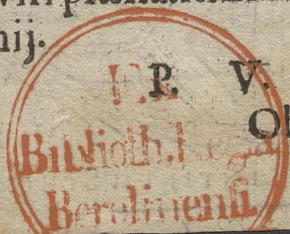 nij.
P. V.
Ex
Biblioth. Regia
Berolinensi.